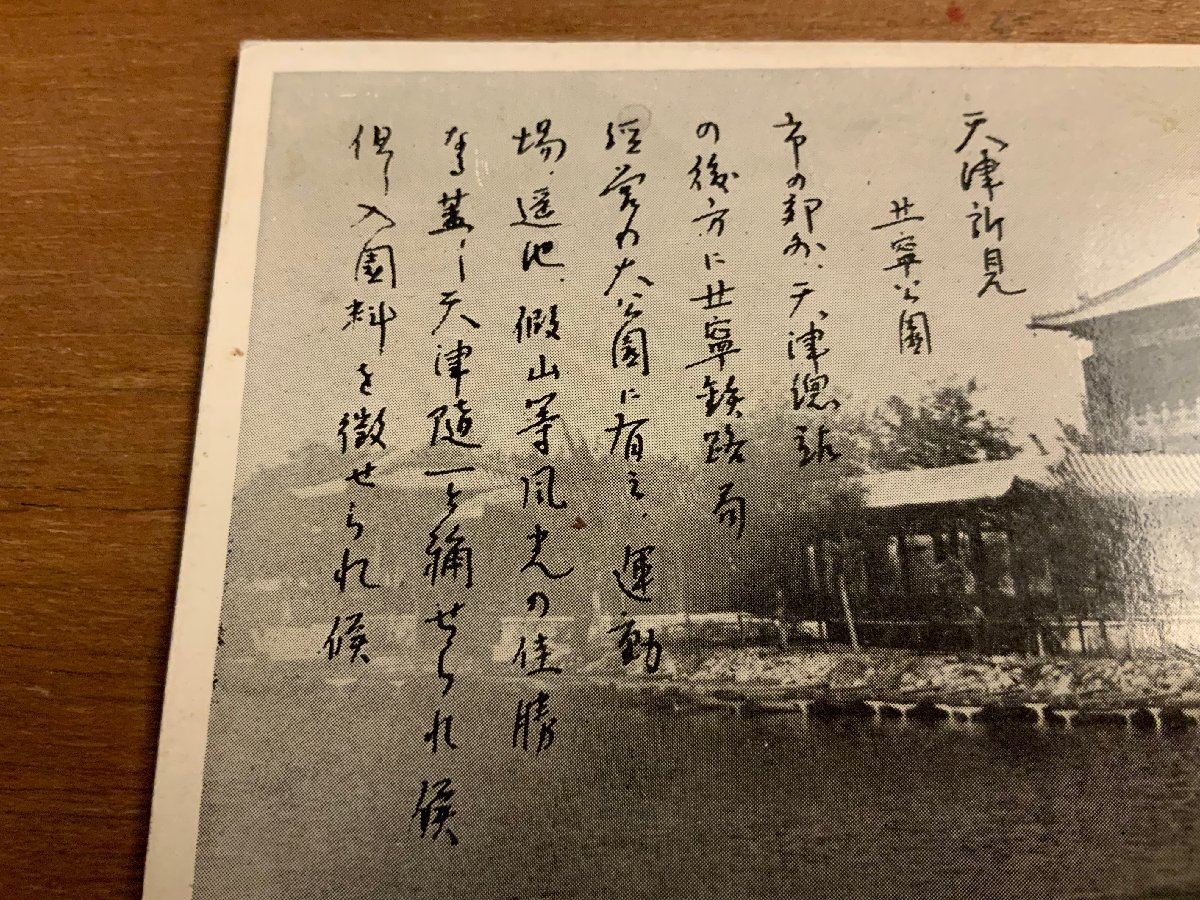 天津所見
北寧公園
市の郊外、天津總站
の後方に北寧鉄路局
経営の大公園に有之、運動
場、遥池、假山等風光の佳勝
なる蓋し天津随一と稱せられ候
但し入園料を徴せられ候